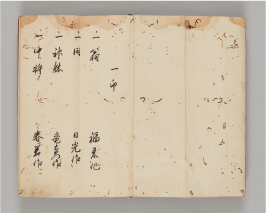 一印
一翁 福来作
一同 日光作
一 作
一中将 春若作